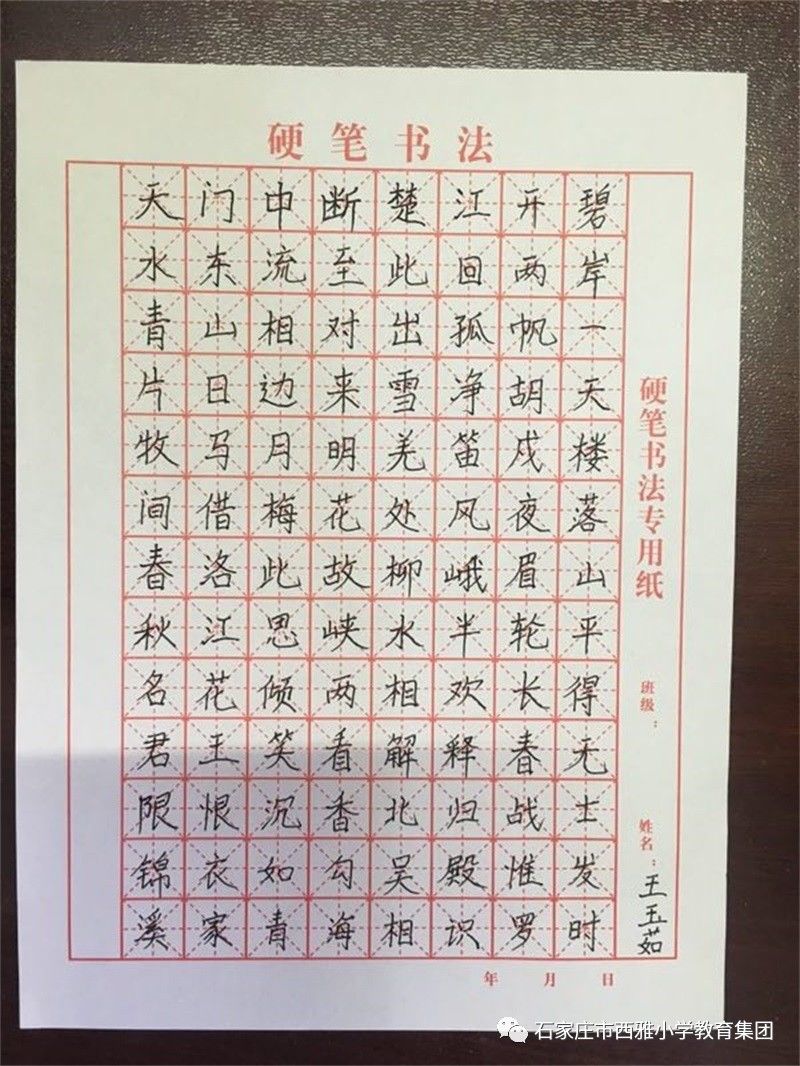 硬笔书法
天门中断楚江开碧
水东流至此回两岸
青山相对出孤帆一
片日边来雪净胡天
牧马月明羌笛戍楼
间借梅花处风夜落
春洛此故柳峨眉山
秋江思峡水半轮平
名花倾两相欢长得
君王笑看解释春无
限恨沉香北归战士
锦衣如勾吴殿惟发
溪家青海相识罗时
硬笔书法专用纸
班级：
姓名：王玉茹
年 月 日
石家庄市西雅小学教育集团